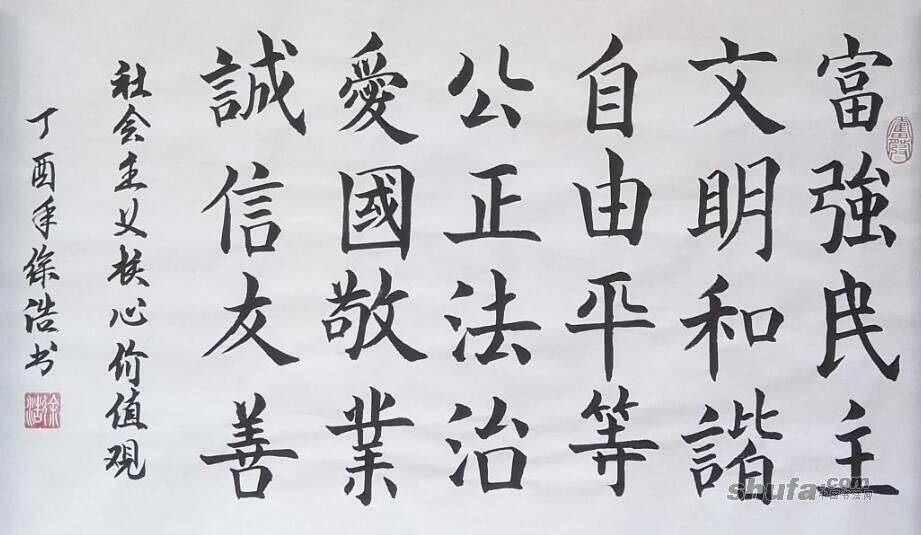 富強民主
文明和諧
自由平等
公正法治
愛國敬業
誠信友善
社会主义核心价值观
丁酉年徐浩书
徐浩
shufa.com
中国书法网